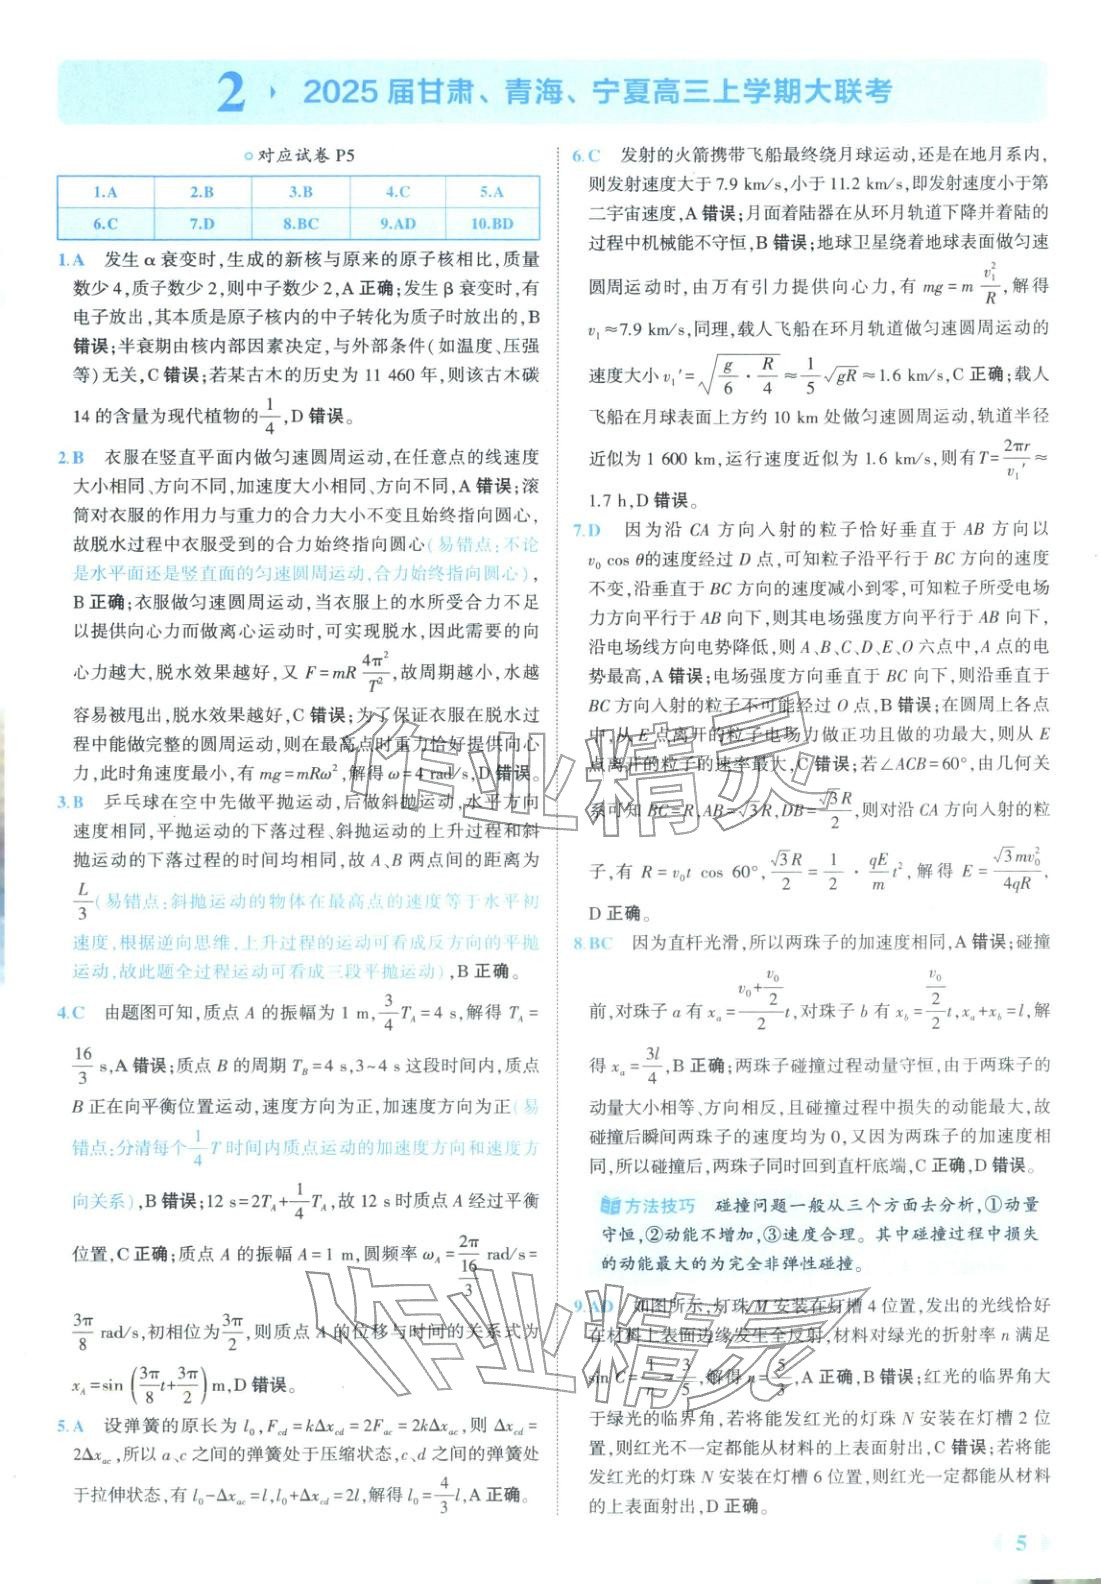 2 2025届甘肃、青海、宁夏高三上学期大联考
对应试卷 P5
1.A 2.B 3.B 4.C 5.A
6.C 7.D 8.BC 9.AD 10.BD
1.A 发生 α 衰变时,生成的新核与原来的原子核相比,质量
数少 4,质子数少 2,则中子数少 2,A 正确;发生 β 衰变时,有
电子放出,其本质是原子核内的中子转化为质子时放出的,B
错误;半衰期由核内部因素决定,与外部条件(如温度、压强
等)无关,C 错误;若某古木的历史为 11 460 年,则该古木碳
14 的含量为现代植物的1/4,D 错误。
2.B 衣服在竖直平面内做匀速圆周运动,在任意点的线速度
大小相同、方向不同,加速度大小相同、方向不同,A 错误;滚
筒对衣服的作用力与重力的合力大小不变且始终指向圆心,
故脱水过程中衣服受到的合力始终指向圆心(易错点:不论
是水平面还是竖直面的匀速圆周运动,合力始终指向圆心),
B 正确;衣服做匀速圆周运动,当衣服上的水所受合力不足
以提供向心力而做离心运动时,可实现脱水,因此需要的向
心力越大,脱水效果越好,又 F=mR 4π²/T²,故周期越小,水越
容易被甩出,脱水效果越好,C 错误;为了保证衣服在脱水过
程中能做完整的圆周运动,则在最高点时重力恰好提供向心
力,此时角速度最小,有 mg=mRω²,解得 ω=4 rad/s,D 错误。
3.B 乒乓球在空中先做平抛运动,后做斜抛运动,水平方向
速度相同,平抛运动的下落过程、斜抛运动的上升过程和斜
抛运动的下落过程的时间均相同,故 A、B 两点间的距离为
L/3(易错点:斜抛运动的物体在最高点的速度等于水平初
速度,根据逆向思维,上升过程的运动可看成反方向的平抛
运动,故此题全过程运动可看成三段平抛运动),B 正确。
4.C 由题图可知,质点 A 的振幅为 1 m,3/4 T_A=4 s,解得 T_A=
16/3 s,A 错误;质点 B 的周期 T_B=4 s,3~4 s 这段时间内,质点
B 正在向平衡位置运动,速度方向为正,加速度方向为正(易
错点:分清每个1/4 T 时间内质点运动的加速度方向和速度方
向关系),B 错误;12 s=2T_A+1/4 T_A,故 12 s 时质点 A 经过平衡
位置,C 正确;质点 A 的振幅 A=1 m,圆频率 ω_A=2π/(16/3) rad/s=
3π/8 rad/s,初相位为3π/2,则质点 A 的位移与时间的关系式为
x_A=sin(3π/8 t+3π/2)m,D 错误。
5.A 设弹簧的原长为 l₀,F_cd=kΔx_cd=2F_ac=2kΔx_ac,则 Δx_cd=
2Δx_ac,所以 a、c 之间的弹簧处于压缩状态,c、d 之间的弹簧处
于拉伸状态,有 l₀-Δx_ac=l,l₀+Δx_cd=2l,解得 l₀=4/3 l,A 正确。
6.C 发射的火箭携带飞船最终绕月球运动,还是在地月系内,
则发射速度大于 7.9 km/s,小于 11.2 km/s,即发射速度小于第
二宇宙速度,A 错误;月面着陆器在从环月轨道下降并着陆的
过程中机械能不守恒,B 错误;地球卫星绕着地球表面做匀速
圆周运动时,由万有引力提供向心力,有 mg=m v₁²/R,解得
v₁≈7.9 km/s,同理,载人飞船在环月轨道做匀速圆周运动的
速度大小 v₁′=√(g/6·R/4)≈1/5 √(gR)≈1.6 km/s,C 正确;载人
飞船在月球表面上方约 10 km 处做匀速圆周运动,轨道半径
近似为 1 600 km,运行速度近似为 1.6 km/s,则有 T=2πr/v₁′≈
1.7 h,D 错误。
7.D 因为沿 CA 方向入射的粒子恰好垂直于 AB 方向以
v₀cos θ的速度经过 D 点,可知粒子沿平行于 BC 方向的速度
不变,沿垂直于 BC 方向的速度减小到零,可知粒子所受电场
力方向平行于 AB 向下,则其电场强度方向平行于 AB 向下,
沿电场线方向电势降低,则 A、B、C、D、E、O 六点中,A 点的电
势最高,A 错误;电场强度方向垂直于 BC 向下,则沿垂直于
BC 方向入射的粒子不可能经过 O 点,B 错误;在圆周上各点
中,从 E 点离开的粒子电场力做正功且做的功最大,则从 E
点离开的粒子的速率最大,C 错误;若∠ACB=60°,由几何关
系可知 BC=R,AB=√3R,DB=√3R/2,则对沿 CA 方向入射的粒
子,有 R=v₀t cos 60°,√3R/2=1/2·qE/m t²,解得 E=√3mv₀²/4qR,
D 正确。
8.BC 因为直杆光滑,所以两珠子的加速度相同,A 错误;碰撞
前,对珠子 a 有 x_a=(v₀+v₀/2)/2 t,对珠子 b 有 x_b=(v₀/2)/2 t,x_a+x_b=l,解
得 x_a=3l/4,B 正确;两珠子碰撞过程动量守恒,由于两珠子的
动量大小相等、方向相反,且碰撞过程中损失的动能最大,故
碰撞后瞬间两珠子的速度均为 0,又因为两珠子的加速度相
同,所以碰撞后,两珠子同时回到直杆底端,C 正确,D 错误。
方法技巧 碰撞问题一般从三个方面去分析,①动量
守恒,②动能不增加,③速度合理。其中碰撞过程中损失
的动能最大的为完全非弹性碰撞。
9.AD 如图所示,灯珠 M 安装在灯槽 4 位置,发出的光线恰好
在材料上表面边缘发生全反射,材料对绿光的折射率 n 满足
sin C=1/n=3/5,解得 n=5/3,A 正确,B 错误;红光的临界角大
于绿光的临界角,若将能发红光的灯珠 N 安装在灯槽 2 位
置,则红光不一定都能从材料的上表面射出,C 错误;若将能
发红光的灯珠 N 安装在灯槽 6 位置,则红光一定都能从材料
的上表面射出,D 正确。
作业精灵
作业精灵
5